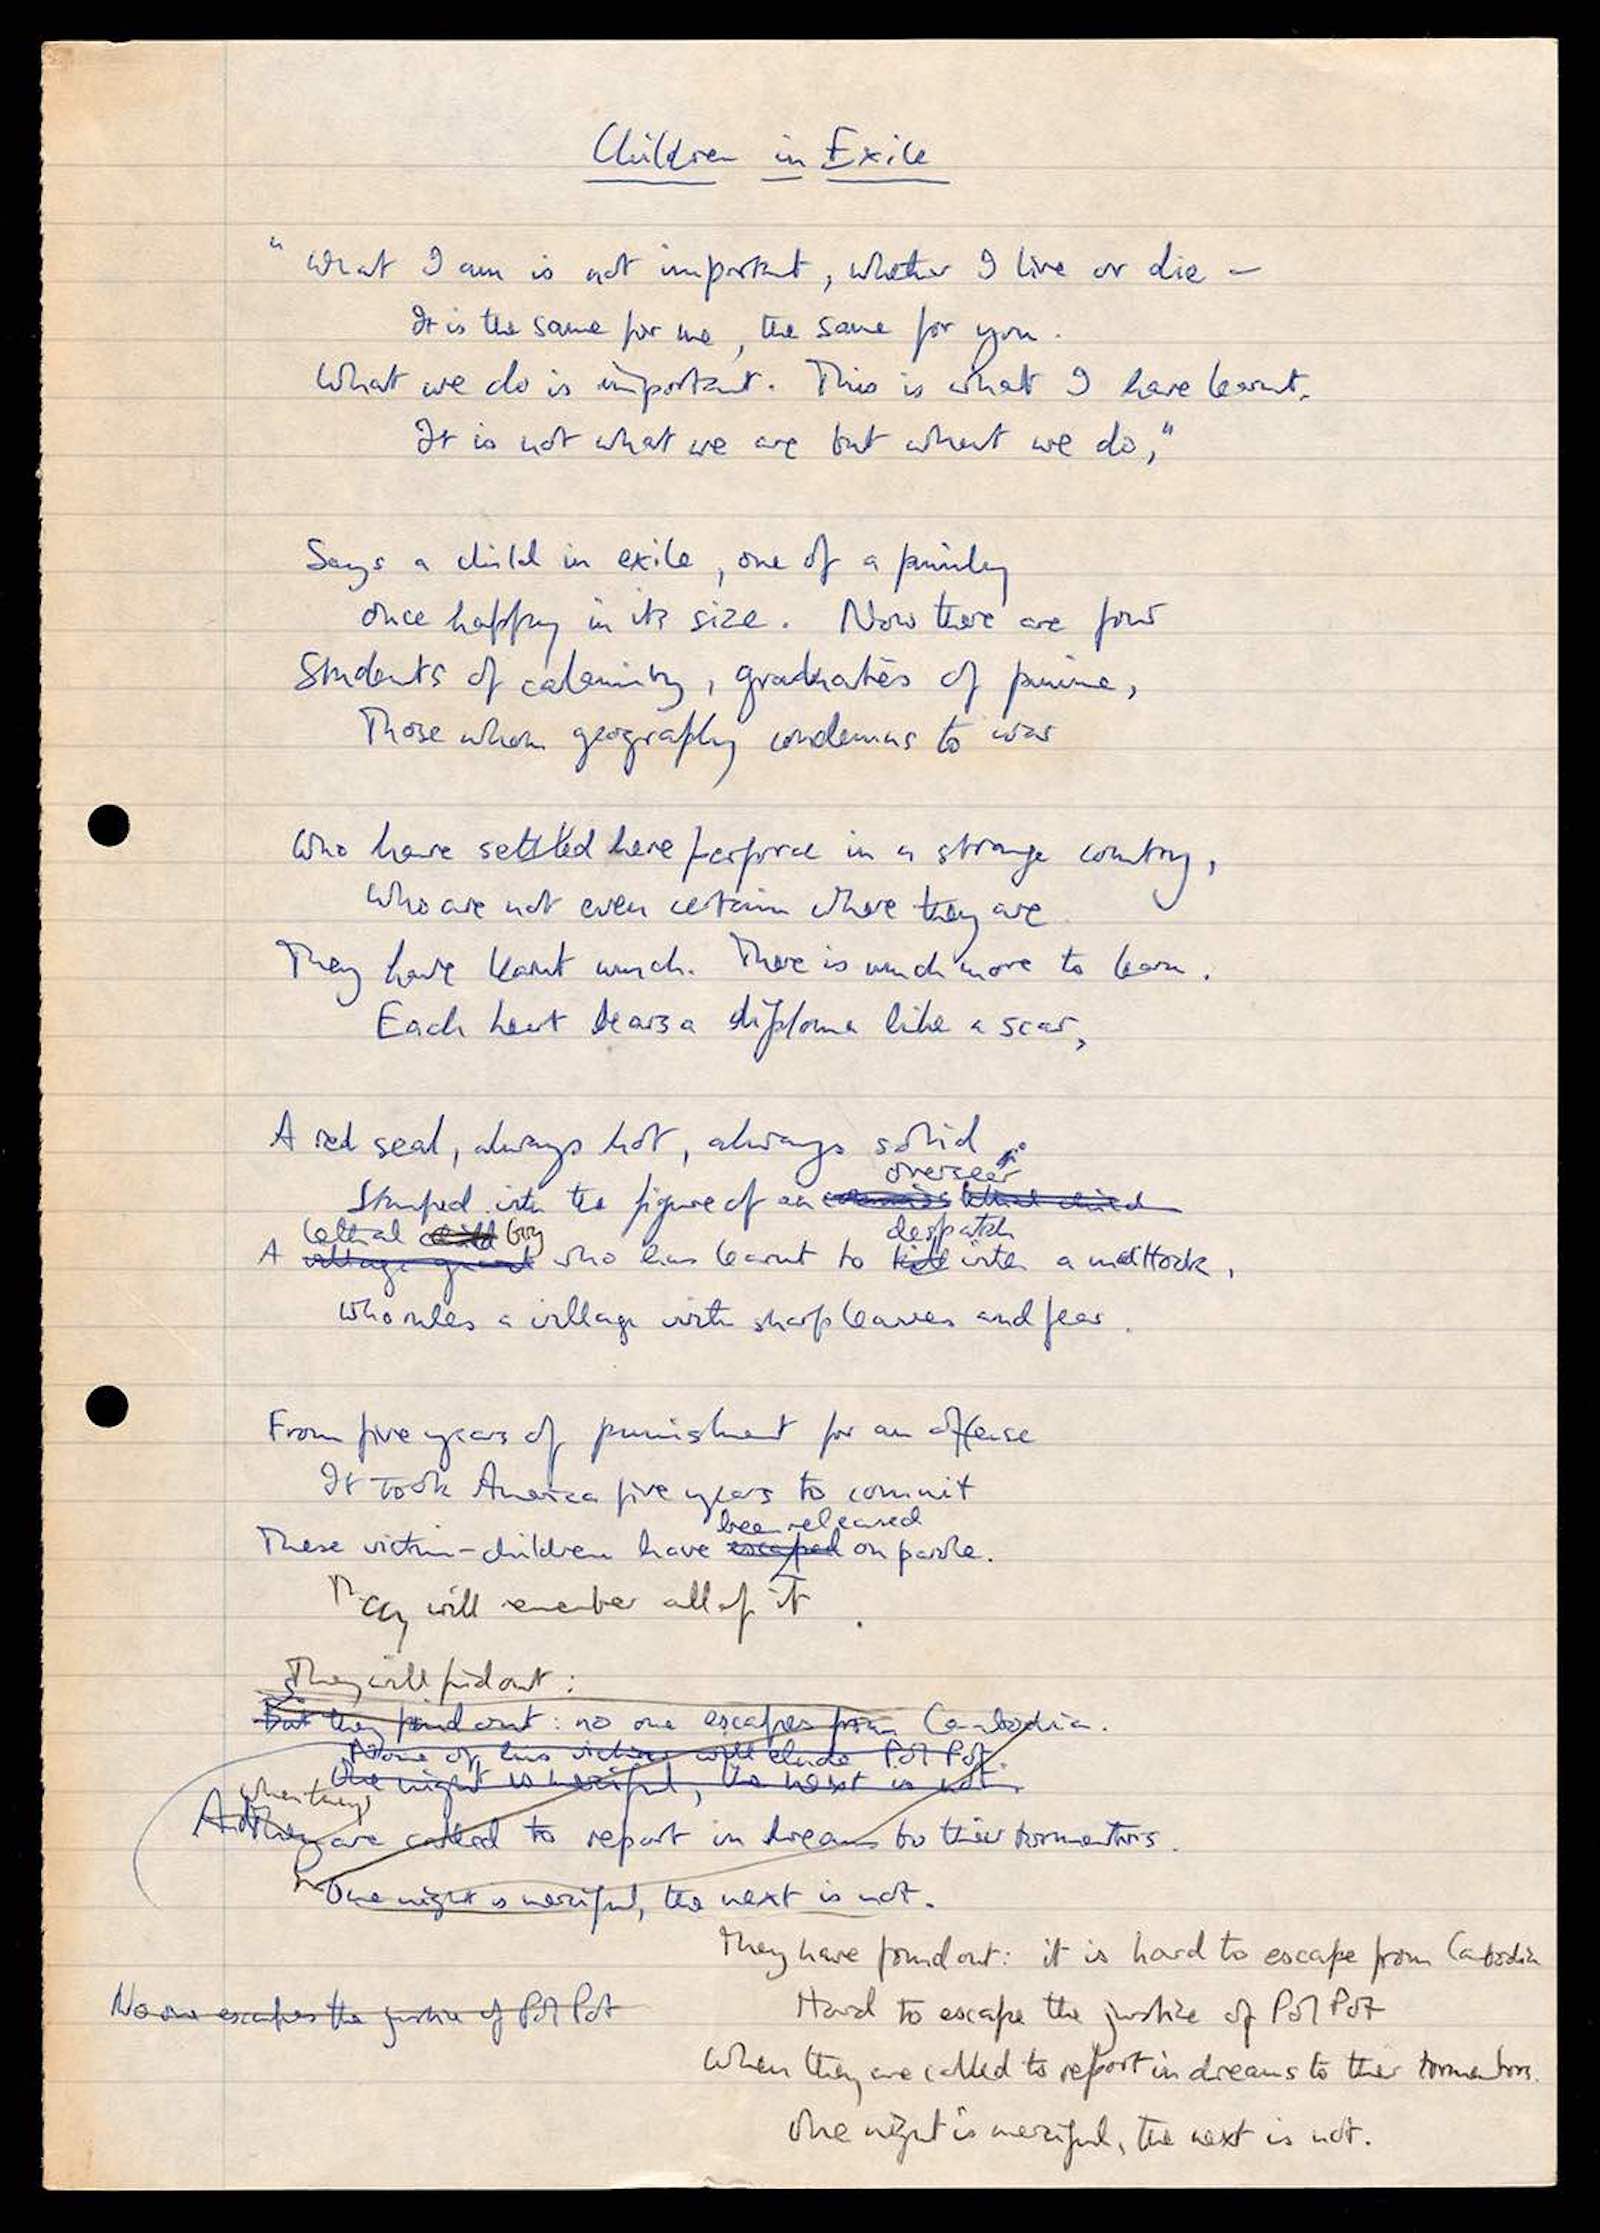 Children in Exile
"What I am is not important, whether I live or die –
It is the same for me, the same for you.
What we do is important. This is what I have learnt.
It is not what we are but what we do,"
Says a child in exile, one of a family
Once happy in its size. Now there are four
Students of calamity, graduates of famine,
Those whom geography condemns to war
Who have settled here perforce in a strange country,
Who are not even certain where they are.
They have learnt much. There is much more to learn.
Each heart bears a diploma like a scar,
A red seal, always hot, always solid,
overseer
Stamped with the figure of an lethal child
lethal child boy despatch
A village guard who has learnt to kill with a mattock,
Who rules a village with sharp leaves and fear.
From five years of punishment for an offense
It took America five years to commit
been released
These victim-children have escaped on parole.
They will remember all of it.
They will find out:
But they find out: no one escapes from Cambodia.
None of his victims will elude Pol Pot.
One night is merciful, the next is not.
when they
And they are called to report in dreams to their tormentors.
One night is merciful, the next is not.
They have found out: it is hard to escape from Cambodia
No one escapes the justice of Pol Pot
Hard to escape the justice of Pol Pot
When they are called to report in dreams to their tormentors.
One night is merciful, the next is not.